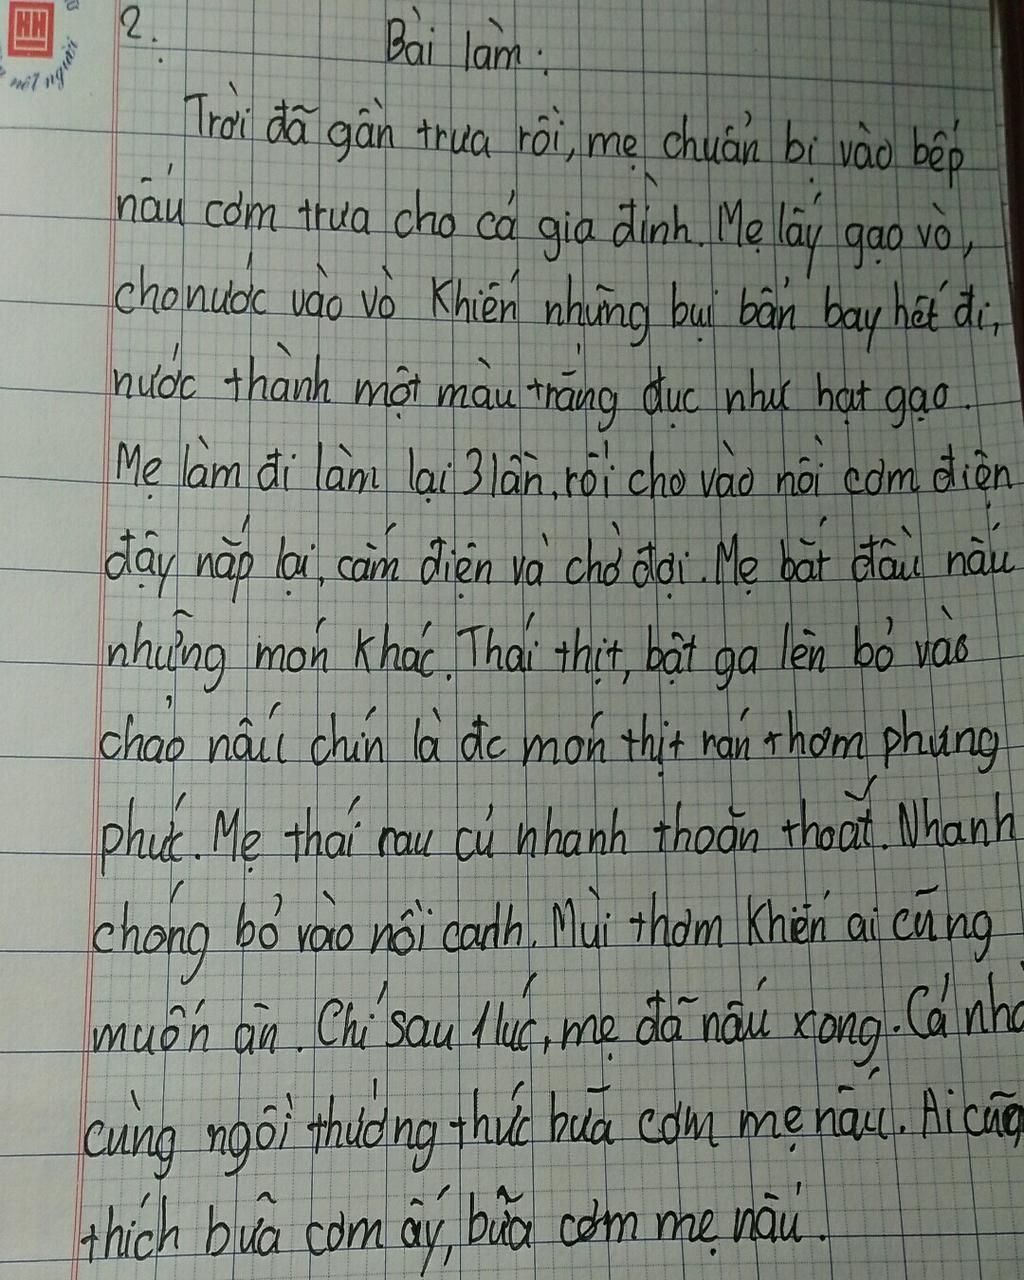 HH
một người
2.
Bài làm:
Trời đã gần trưa rồi, mẹ chuẩn bị vào bếp
nấu cơm trưa cho cả gia đình. Mẹ lấy gạo vò,
cho nước vào vò khiến những bụi bẩn bay hết đi,
nước thành một màu trắng đục như hạt gạo.
Mẹ làm đi làm lại 3 lần, rồi cho vào nồi cơm điện
đậy nắp lại, cắm điện và chờ đợi. Mẹ bắt đầu nấu
những món khác. Thái thịt, bật ga lên bỏ vào
chảo nấu chín là đc món thịt rán thơm phưng
phức. Mẹ thái rau củ nhanh thoăn thoắt. Nhanh
chóng bỏ vào nồi canh. Mùi thơm khiến ai cũng
muốn ăn. Chỉ sau 1 lúc, mẹ đã nấu xong. Cả nhà
cùng ngồi thưởng thức bữa cơm mẹ nấu. Ai cũng
thích bữa cơm ấy, bữa cơm mẹ nấu.